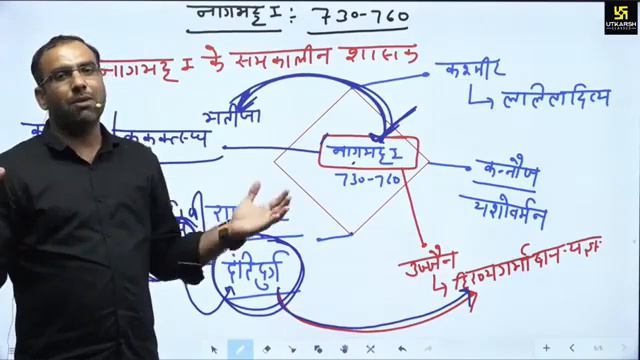 नागभट्ट I : 730-760
UTKARSH
CLASSES
नागभट्ट I के समकालीन शासक
कश्मीर
ललितादित्य
भतीजा
ककुक्कत्स्थ
नागभट्ट I
730-760
कन्नौज
यशोवर्मन
दंतिदुर्ग
उज्जैन
हिरण्यगर्भदान-यज्ञ
1/1